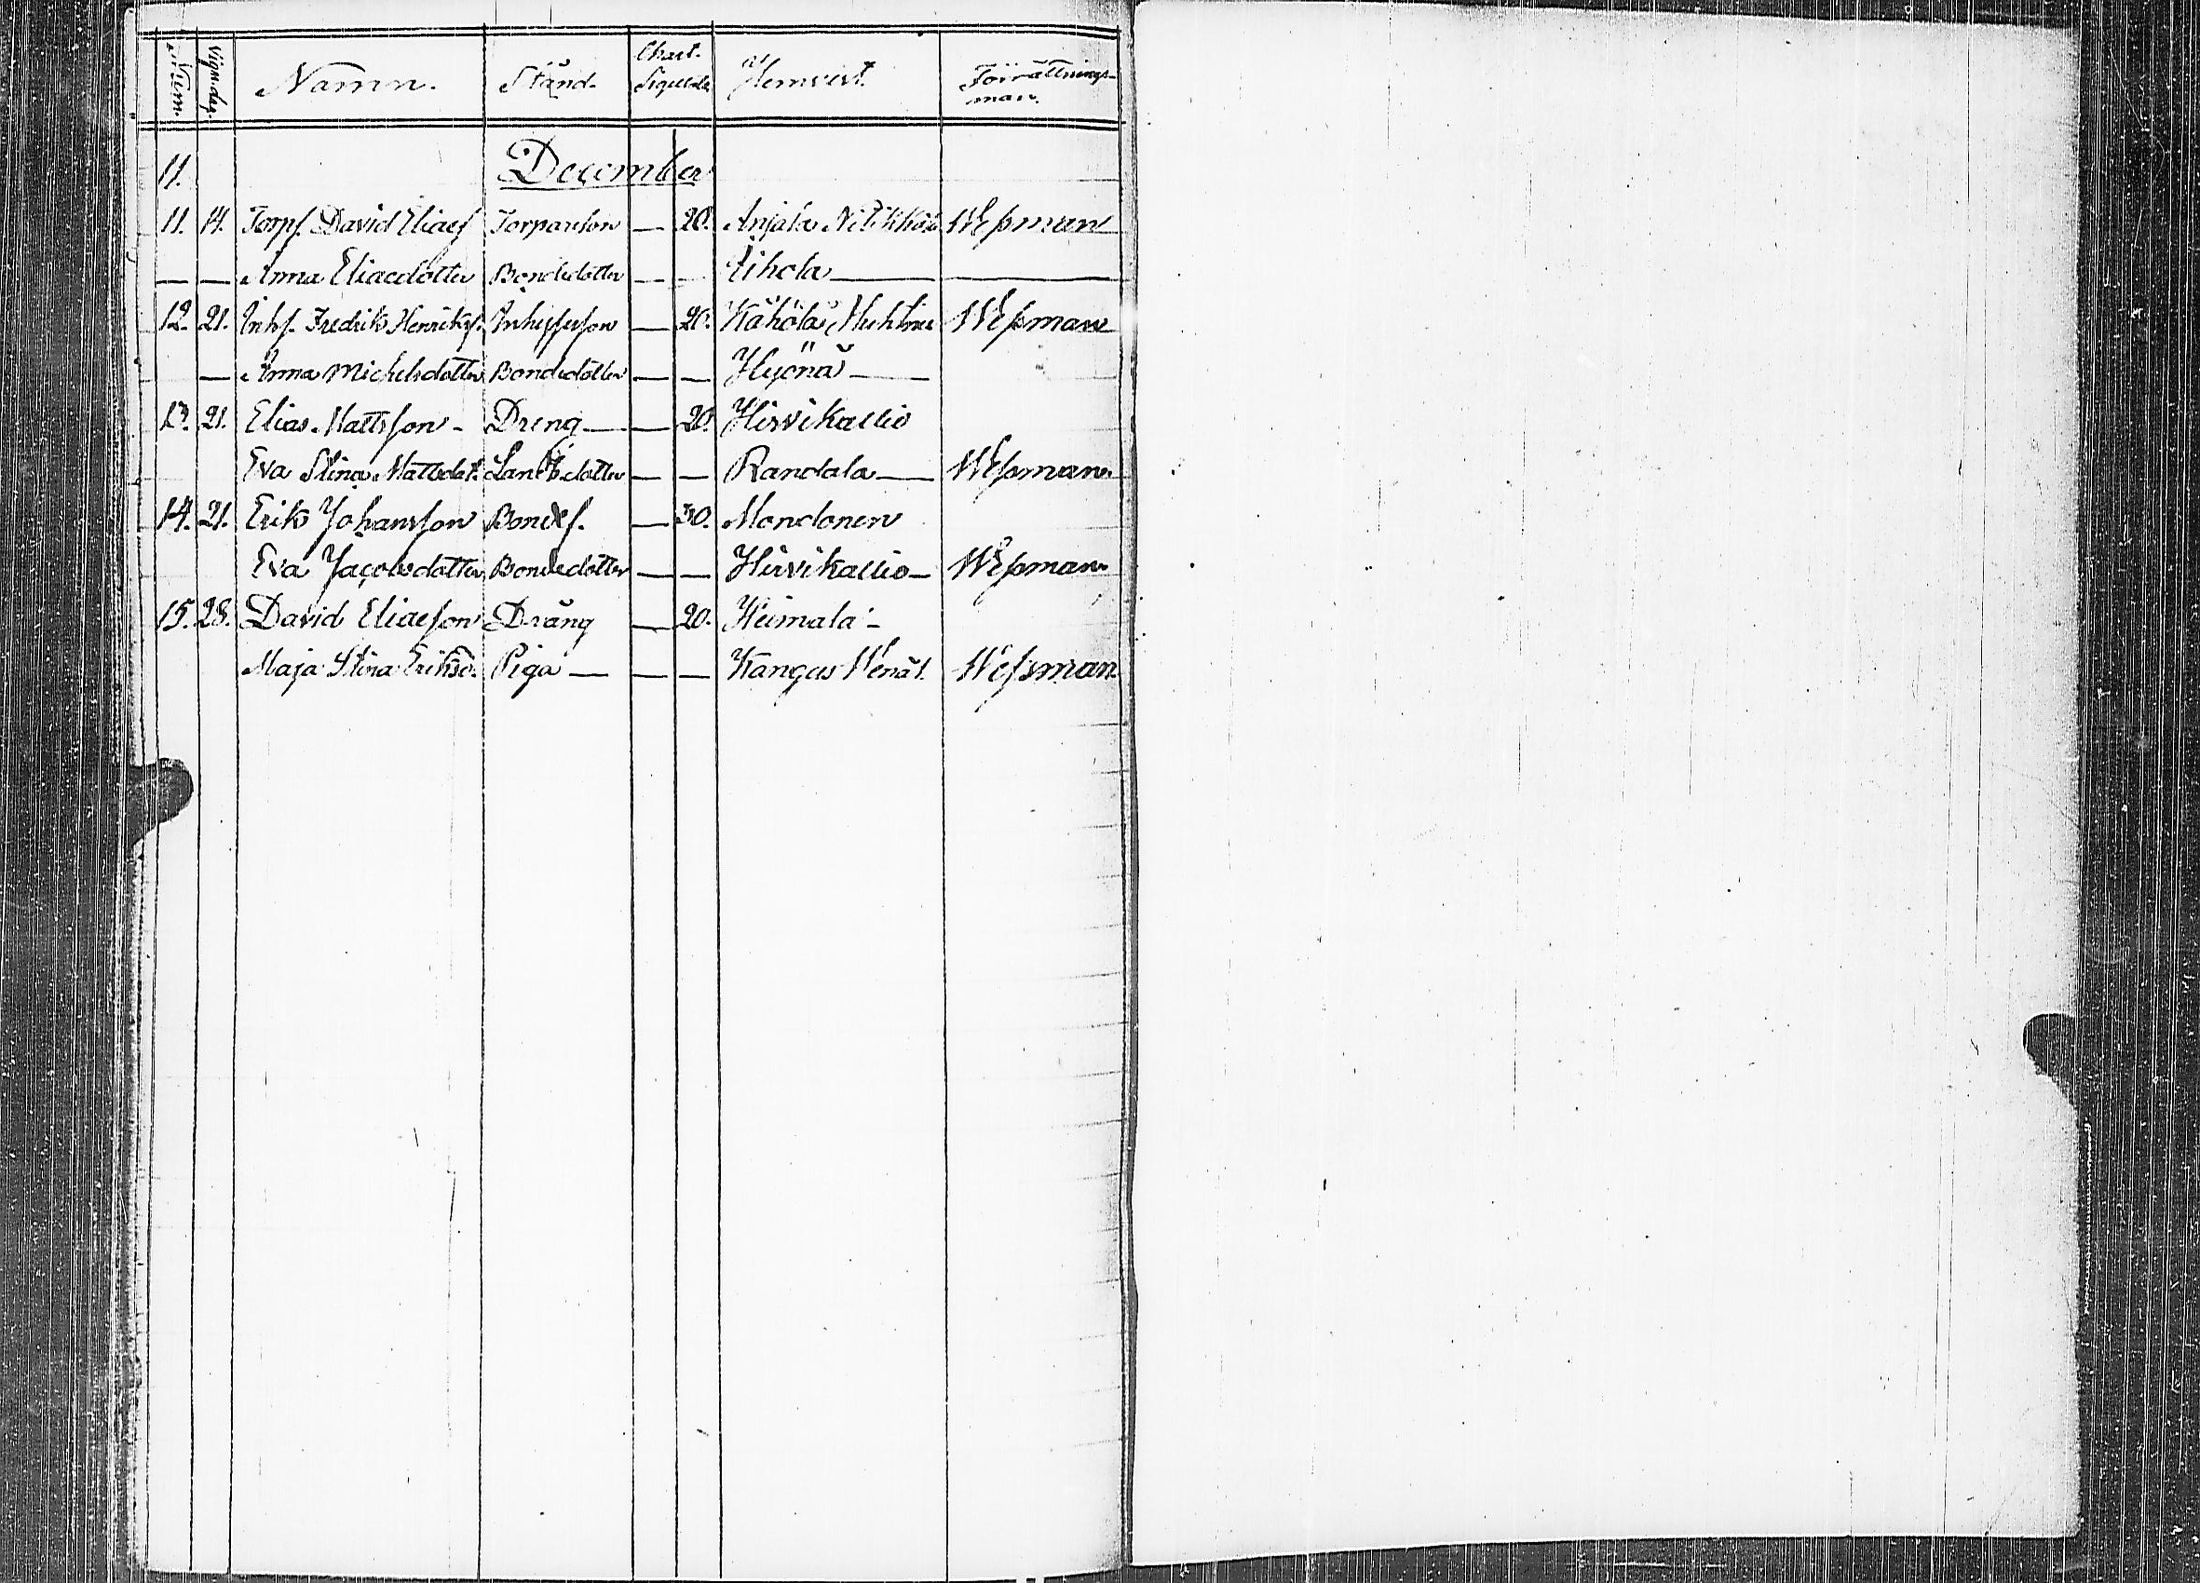 Num. Vign.dag. Namn. Stånd. Chart. Sigill. Hemvist. Förrättnings-man.
11. December
11. 14. Torps. David Eliaes. Torpareson — 20. Anjala Wessman
— — Anna Eliaedotter Bondedotter — — Eihola — —
12. 21. Inhs. Fredrik Henriks. Inhysesson — 20. Kähölä Wessman
— Anna Michelsdotter Bondedotter — — Hyönä —
13. 21. Elias Mattsson - Dreng — — 20. Hirvikallio
Eva Stina Mattsdot. Landb.dotter — — Randala — Wessman.
14. 21. Erik Johansson Bondes. — 30. Mondonen
Eva Jacobsdotter Bondedotter — — Hirvikallio — Wessman
15. 28. David Eliaeson Dräng — 20. Heimala -
Maja Stina Eriksd. Piga — — — Kangas Wessman